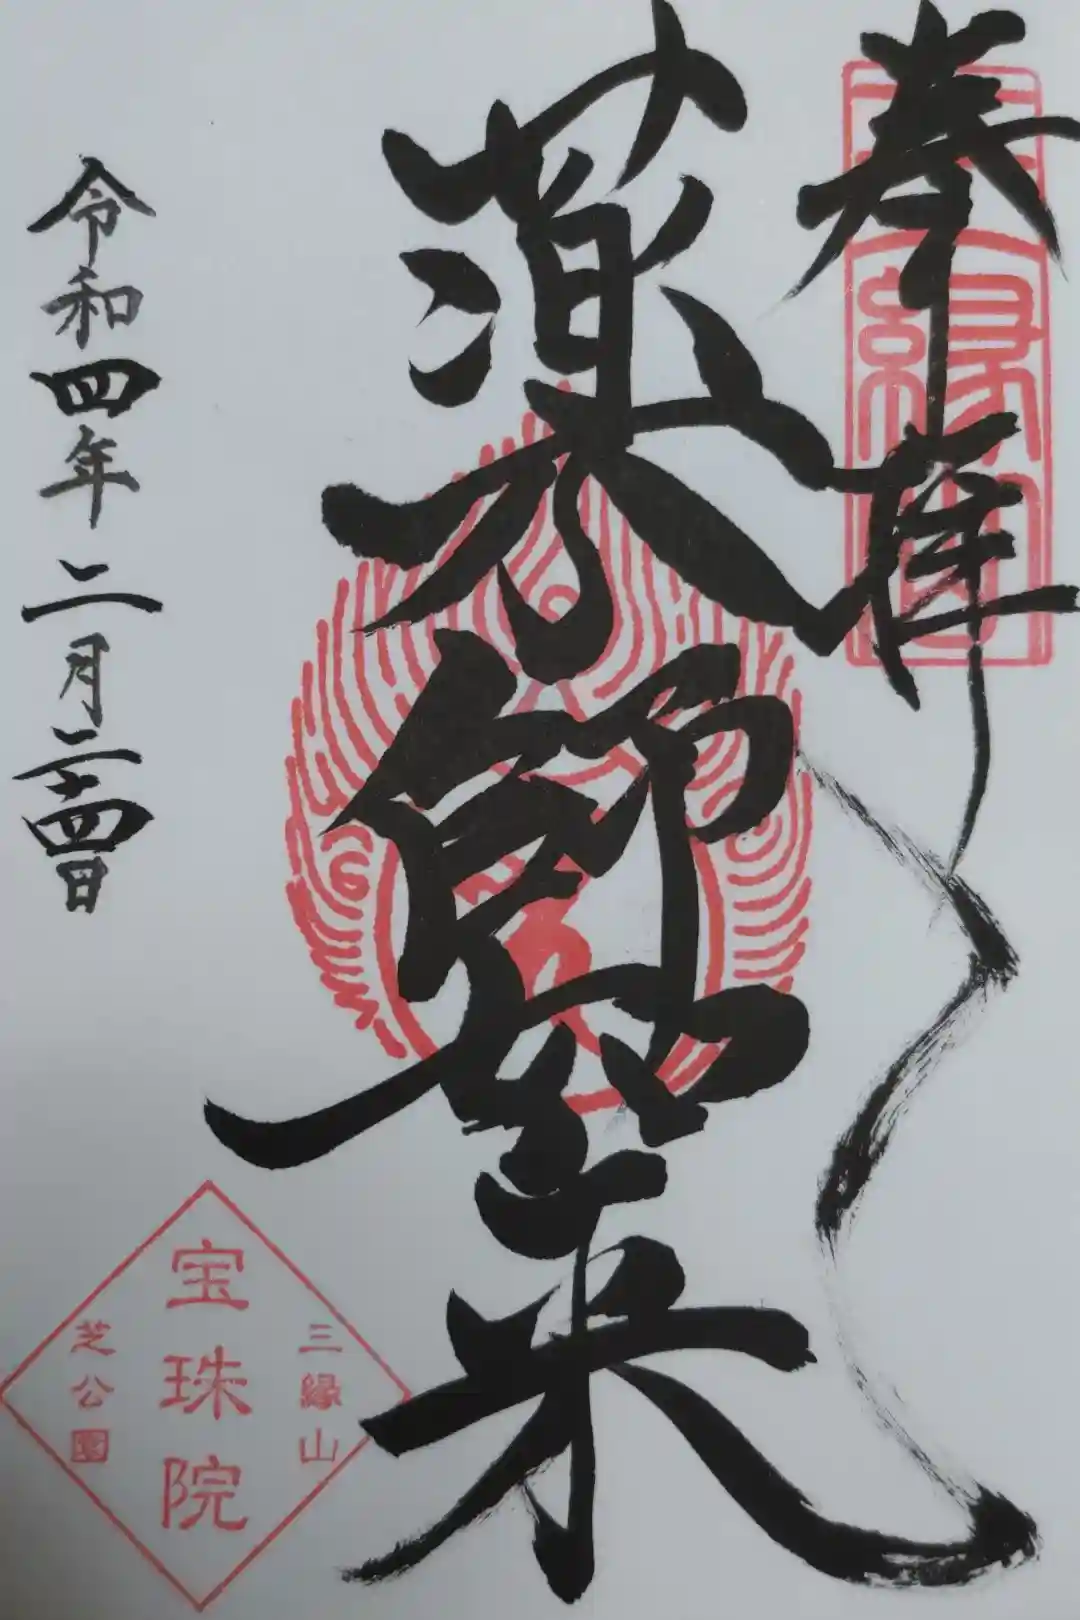 奉拝
三縁山
薬師如来
令和四年二月二十四日
三縁山
宝珠院
芝公園